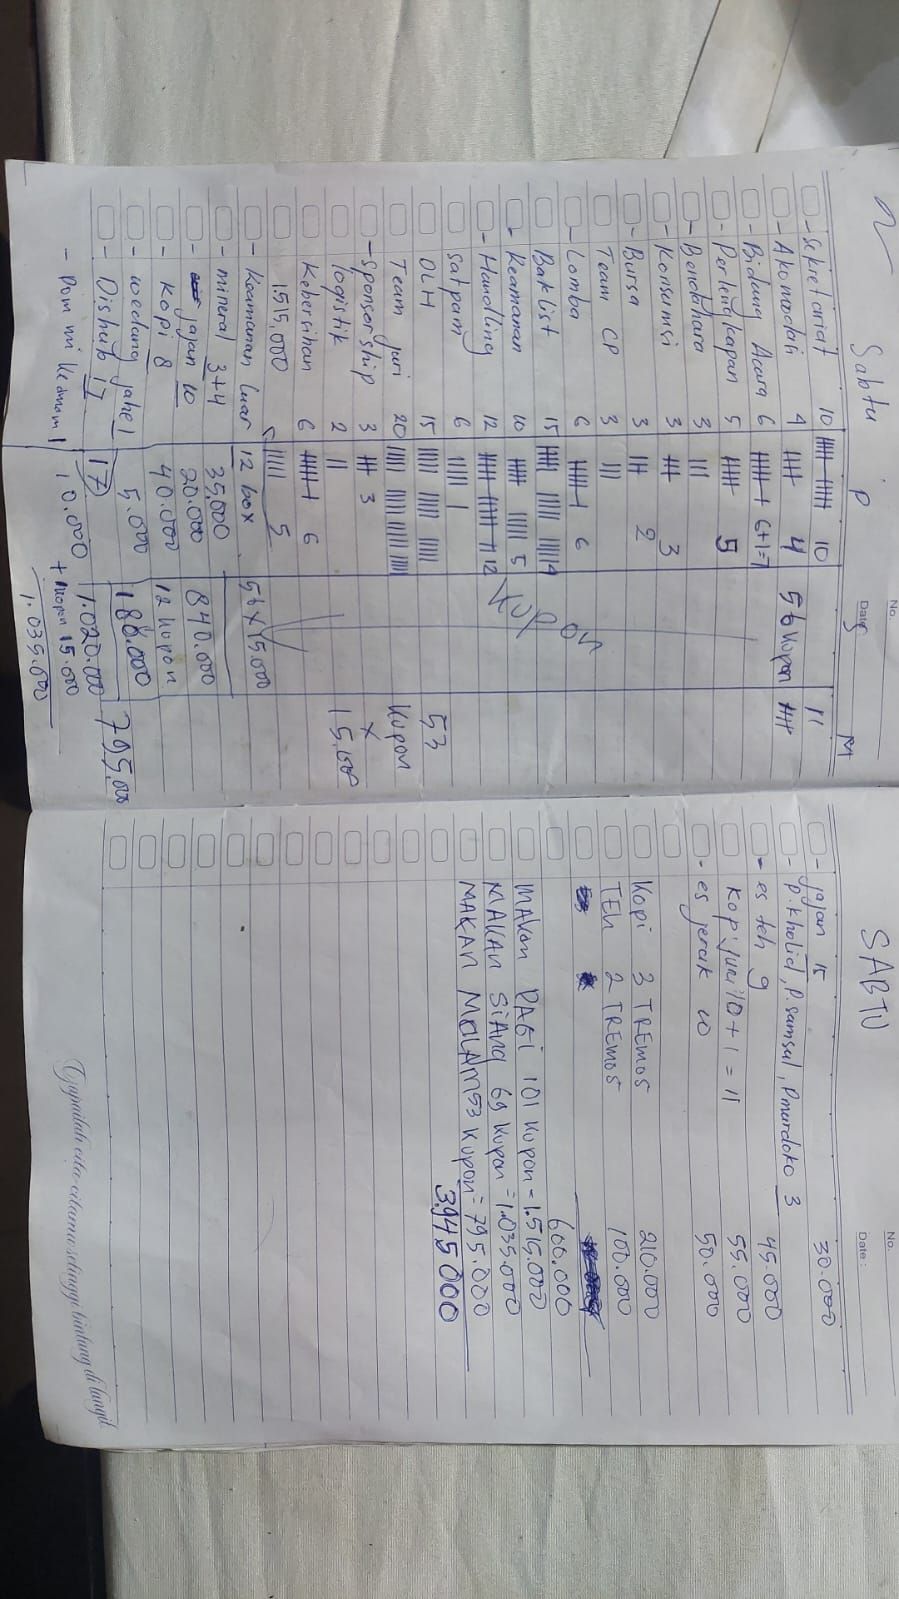 No.
Date
Sabtu P S M
- Sekretariat 10 10 11
- Akomodasi 4 4 56 kupon
- Bidang Acara 6 6+1=7
- Perlengkapan 5 5
- Bendahara 3
- Konsumsi 3 3
- Bursa 3 2
Team CP 3
- Lomba 6 6
Baklist 15
- Keamanan 10 5 Kupon
- Handling 12 12
Satpam 6
OLH 15 53
Team Juri 20 Kupon
- Sponsorship 3 3 x
logistik 2 15.000
Kebersihan 6 6
1.515.000 5
- Keamanan luar 12 box 56 x 15.000
- mineral 3+4 35.000 840.000
- jajan 10 20.000
- Kopi 8 40.000 12 kupon
- wedang jahe 1 5.000 188.000
- Dishub 17 17 1.020.000 795.000
10.000 + 15.000
1.035.000
No.
Date:
SABTU
- jajan 15 30.000
- P. Kholid, P. Samsul, 3
- es teh 9 45.000
Kopi Juri 10 + 1 = 11 55.000
- es jeruk 10 50.000
Kopi 3 TREMOS 210.000
TEH 2 TREMOS 100.000
600.000
MAKAN PAGI 101 Kupon = 1.515.000
MAKAN SIANG 69 Kupon = 1.035.000
MAKAN MALAM 53 Kupon = 795.000
3.945.000
Gapailah cita-citamu setinggi bintang di langit